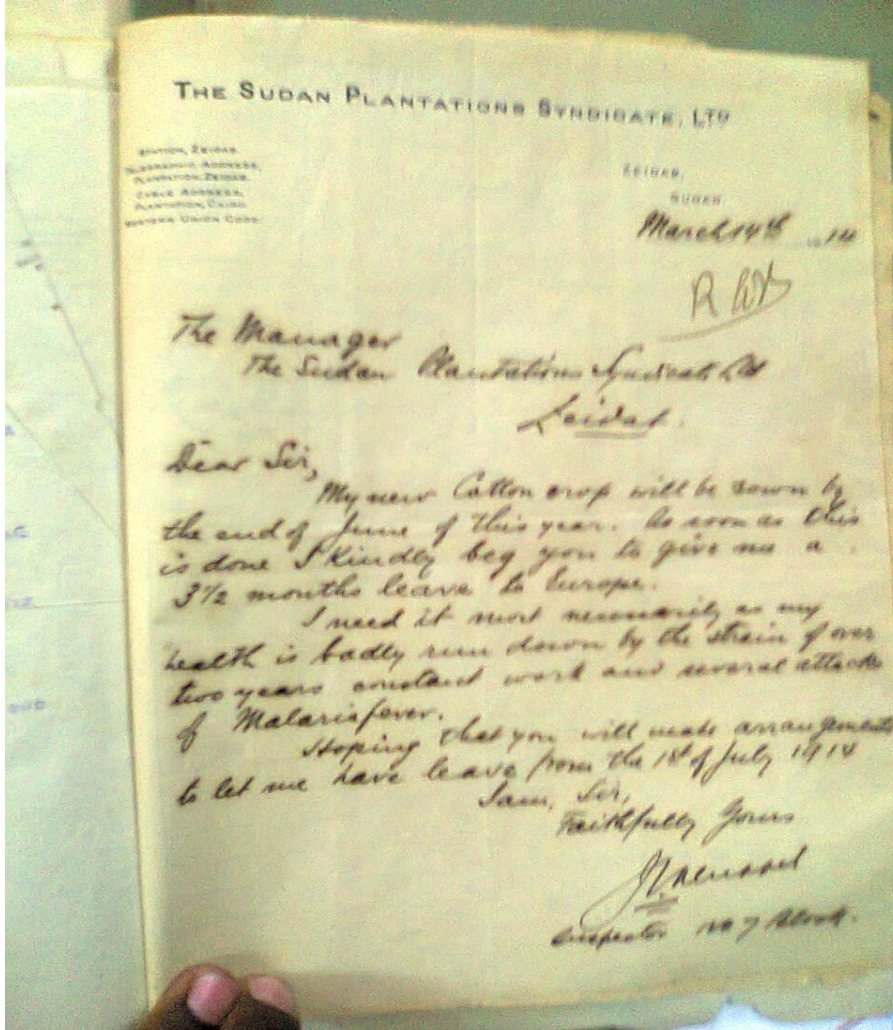 THE SUDAN PLANTATIONS SYNDICATE, LTD
STATION, ZEIDAB.
TELEGRAPHIC ADDRESS,
PLANTATION, ZEIDAB.
CABLE ADDRESS,
PLANTATION, CAIRO.
WESTERN UNION CODE.
ZEIDAB,
SUDAN
March 14th 1914
The Manager
The Sudan Plantations Syndicate Ltd
Zeidab.
Dear Sir,
My new Cotton crop will be sown by
the end of June of this year. As soon as this
is done I kindly beg you to give me a
3 1/2 months leave to Europe.
I need it most necessarily as my
health is badly run down by the strain of over
two years constant work and several attacks
of Malaria fever.
Hoping that you will make arrangements
to let me have leave from the 1st of July 1914
I am, Sir,
Faithfully Yours
Inspector No 7 Block.